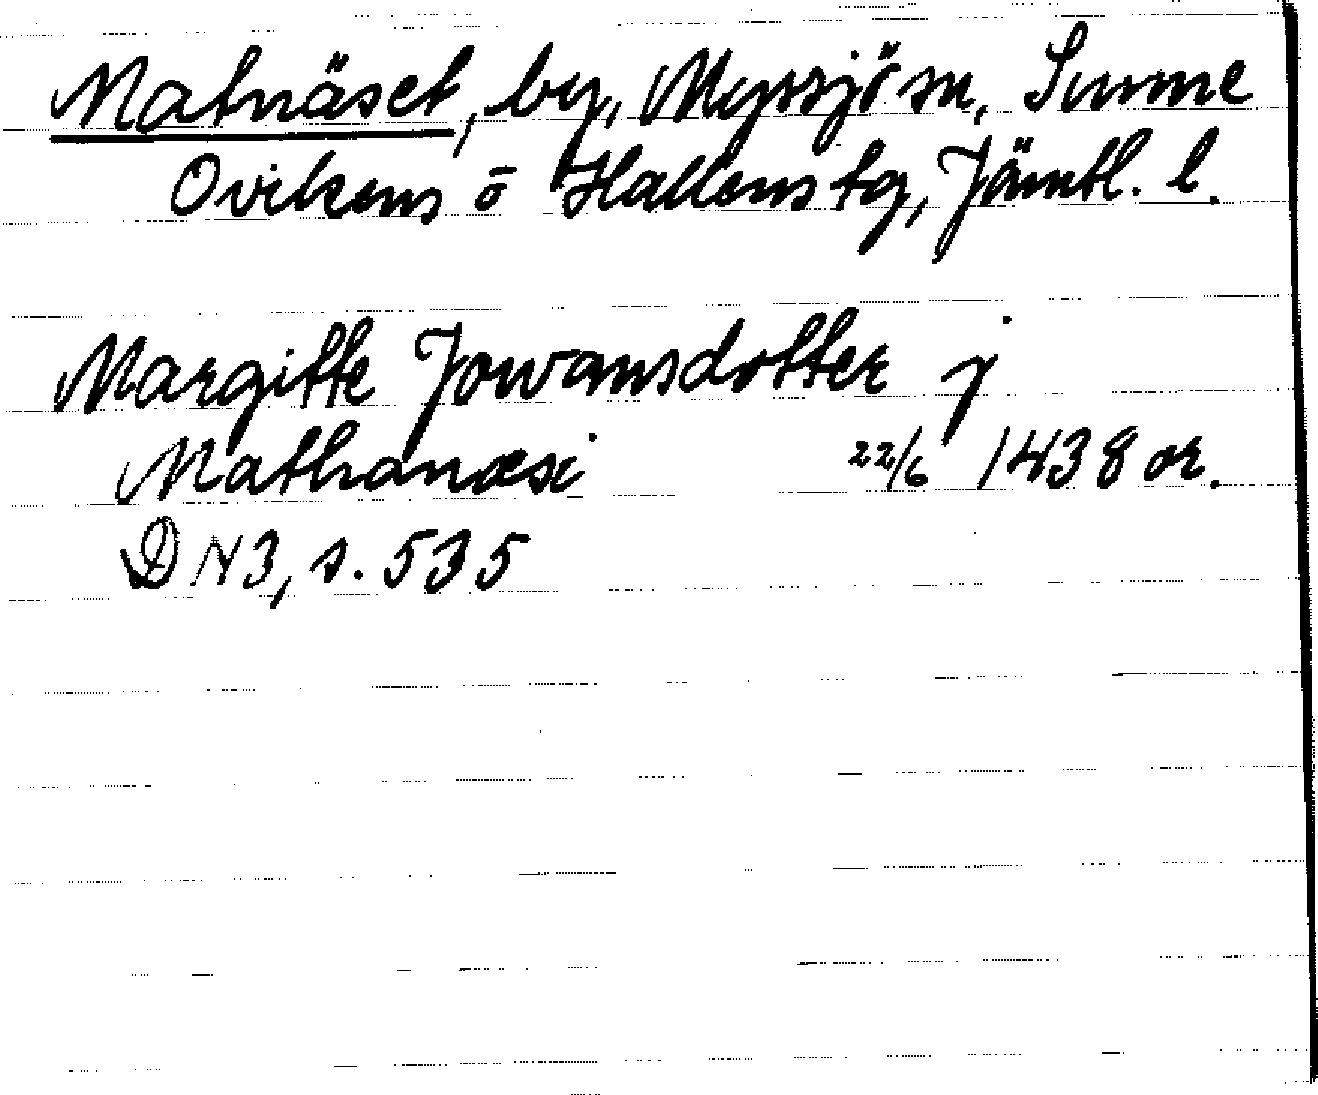 Matnäset, by, Myssjö sn, Sunne
Ovikens o Hallens tg, Jämtl. l.
Margitte Jowansdotter j
Mathanæsi 22/6 1438 or.
DN 3, s. 535